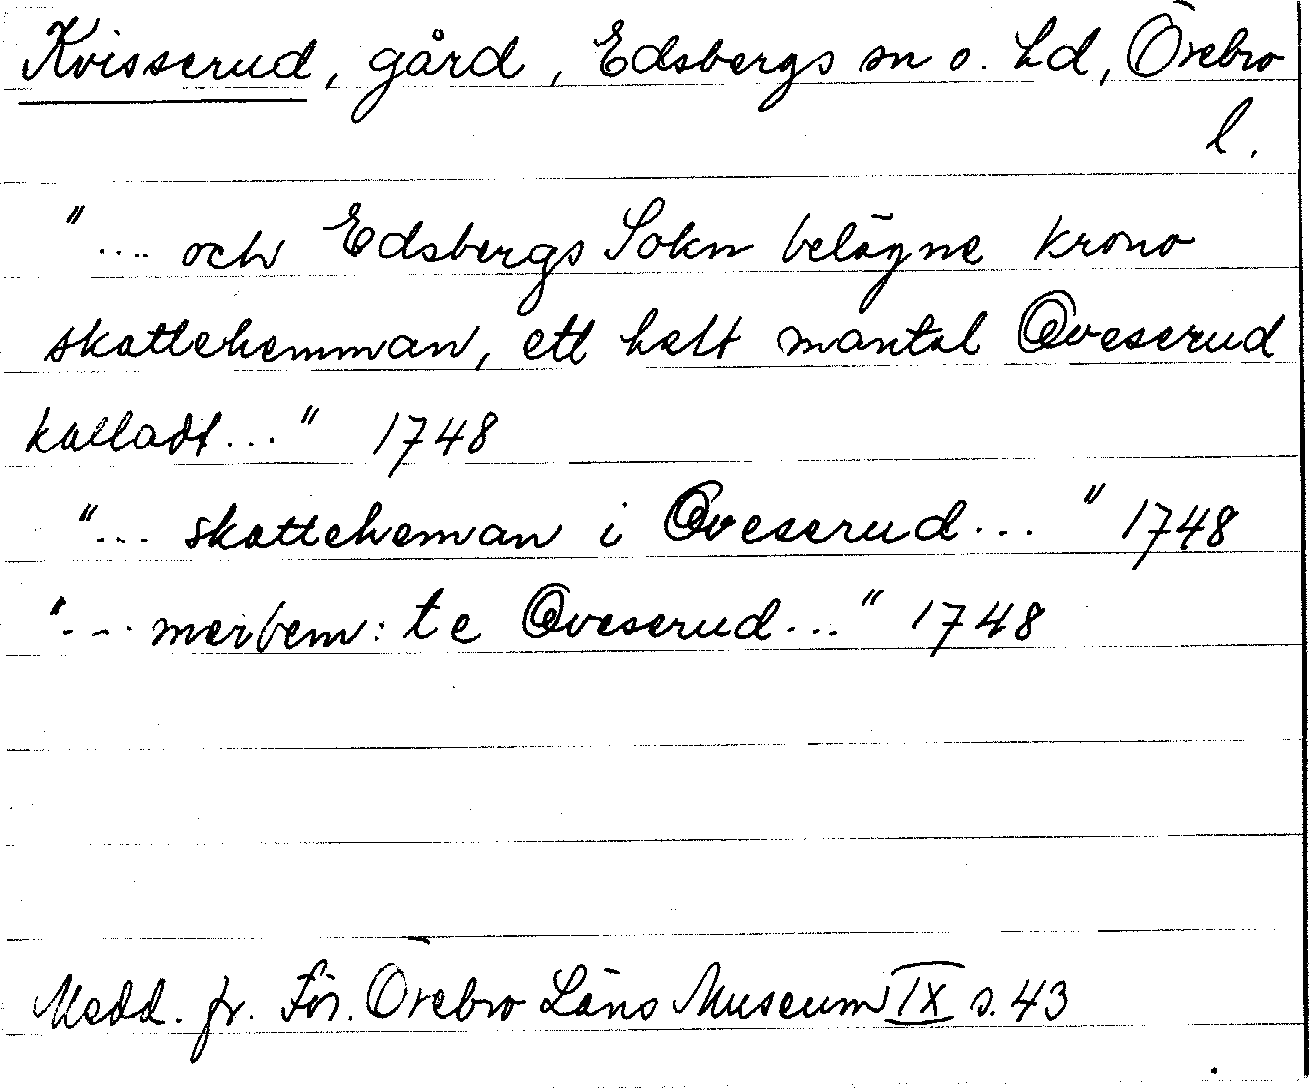 Kvisserud, gård, Edsbergs sn o. hd, Örebro
l.
"... och Edsbergs Sokn belägne krono
skattehemman, ett helt mantal Qveserud
kalladt..." 1748
"... skatteheman i Qveserud..." 1748
"... merbem: te Qveserud..." 1748
Medd. fr. För. Örebro Läns Museum IX s. 43